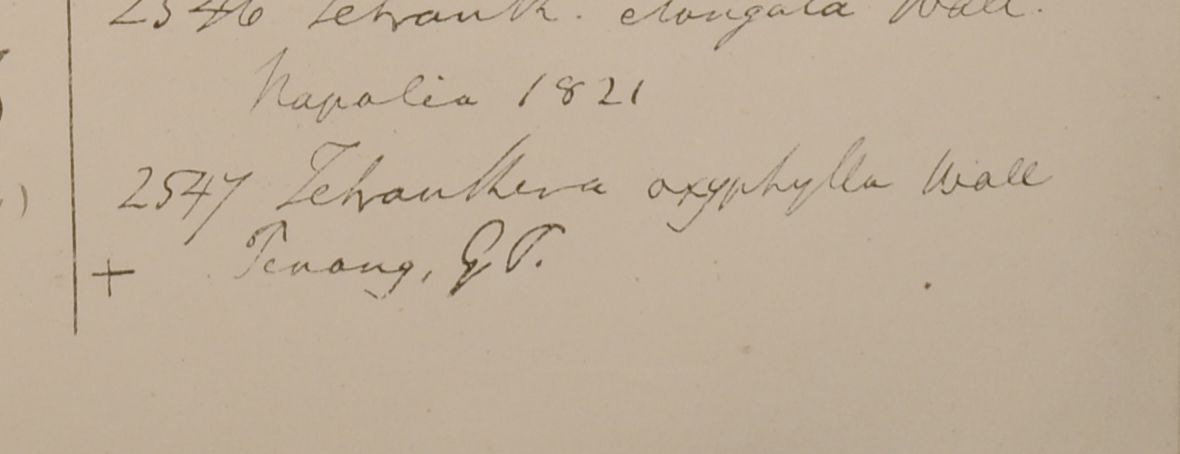 2546 Tetranth. elongata Wall.
Napalia 1821
2547 Tetranthera oxyphylla Wall
+ Penang, G.P.